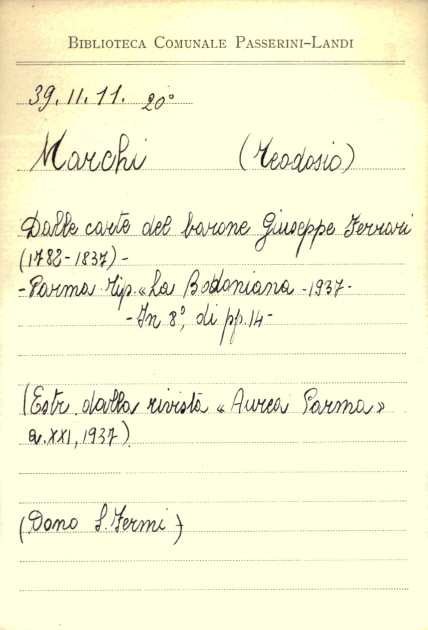 BIBLIOTECA COMUNALE PASSERINI-LANDI
39.II.11. 20°
Marchi (Teodosio)
Dalle carte del barone Giuseppe Ferrari
(1782-1837)-
-Parma. Tip. «La Bodoniana -1937-
-In 8°, di pp. 14-
(Estr. dalla rivista «Aurea Parma»
a. XXI, 1937)
(Dono S. Fermi)